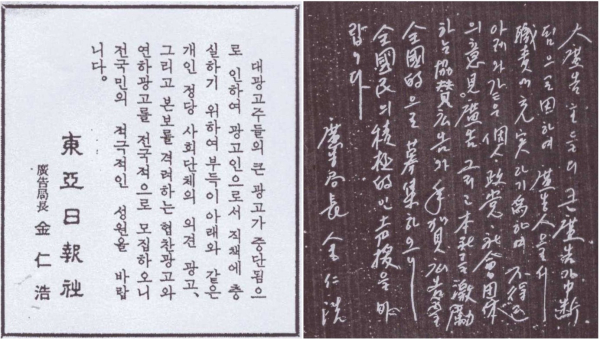 대광고주들의 큰 광고가 중단됨으
로 인하여 광고인으로서 직책에 충
실하기 위하여 부득이 아래와 같은
개인 정당 사회단체의 의견 광고,
그리고 본보를 격려하는 협찬광고와
연하광고를 전국적으로 모집하오니
전국민의 적극적인 성원을 바랍
니다.
東亞日報社
廣告局長 金仁浩
大廣告主들의 큰 廣告가 中断
됨으로 因하여 廣告人으로서
職責에 充実하기 爲하여 不得已
아래와 같은 個人, 政党, 社会団体
의 意見廣告 그리고 本報를 激勵
하는 協賛広告와 年賀広告를
全國的으로 募集하오니
全國民의 積極的인 声援을 바
랍니다
廣告局長 金仁浩